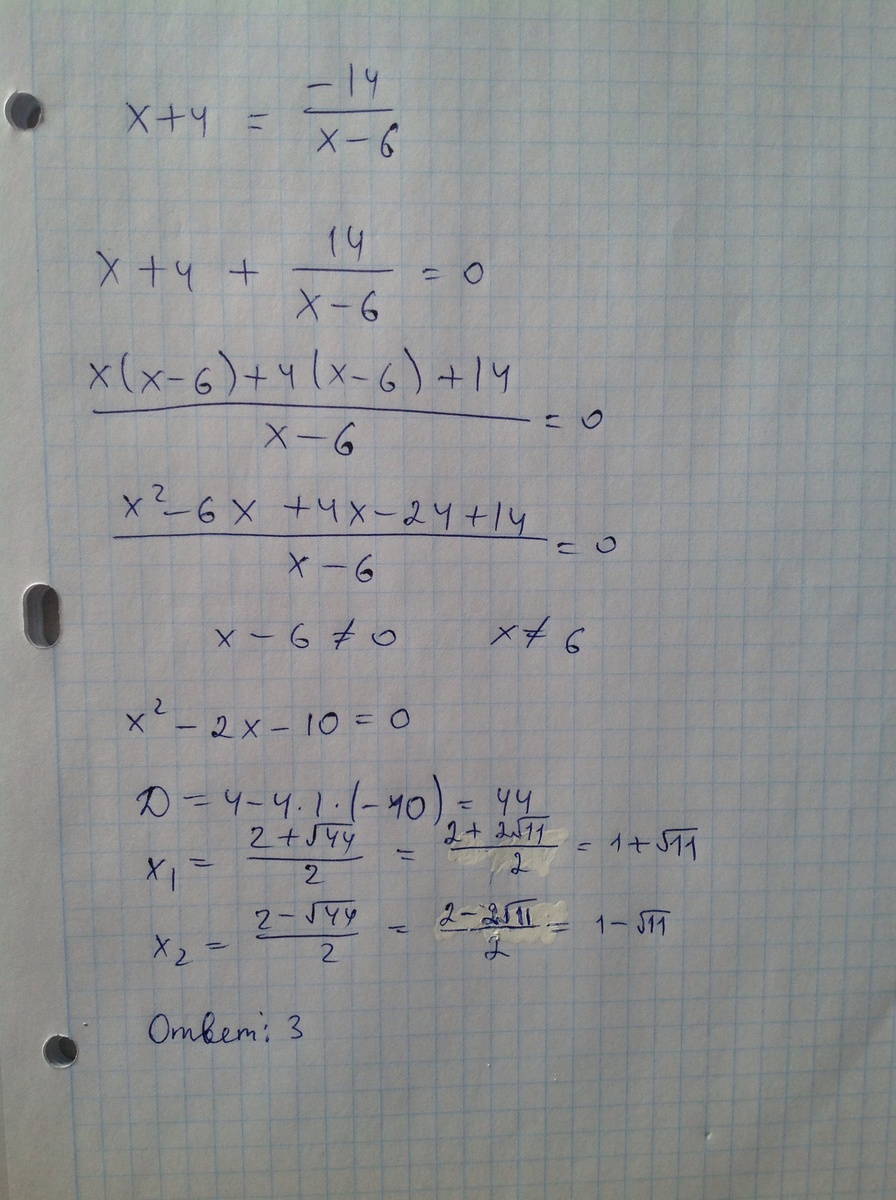 x+4 = -14/(x-6)
x+4 + 14/(x-6) = 0
(x(x-6)+4(x-6)+14)/(x-6) = 0
(x²-6x+4x-24+14)/(x-6) = 0
x-6≠0 x≠6
x²-2x-10=0
D=4-4·1·(-10)=44
x₁=(2+√44)/2=(2+2√11)/2=1+√11
x₂=(2-√44)/2=(2-2√11)/2=1-√11
Ответ: 3